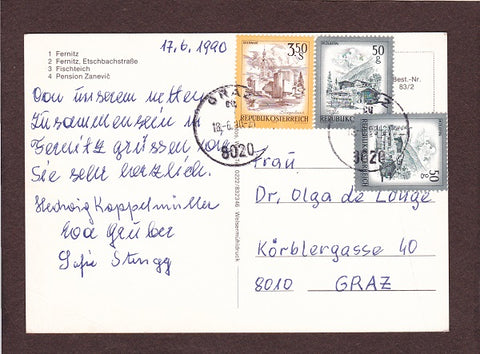 17.6.1990
1 Fernitz
2 Fernitz, Etschbachstraße
3 Fischteich
4 Pension Zanevič
Von unserem netten
Zusammensein in
Fernitz grüssen wir
Sie sehr herzlich.
Hedwig Koppelmüller
Eva Gruber
Sofie
3,50 S
REPUBLIK ÖSTERREICH
50 g
REPUBLIK ÖSTERREICH
50 g
REPUBLIK ÖSTERREICH
GRAZ
18.-6.90
8020
8020
Best.-Nr.
83/2
Weisermühldruck
Frau
Dr. Olga de Longe
Körblergasse 40
8010 GRAZ